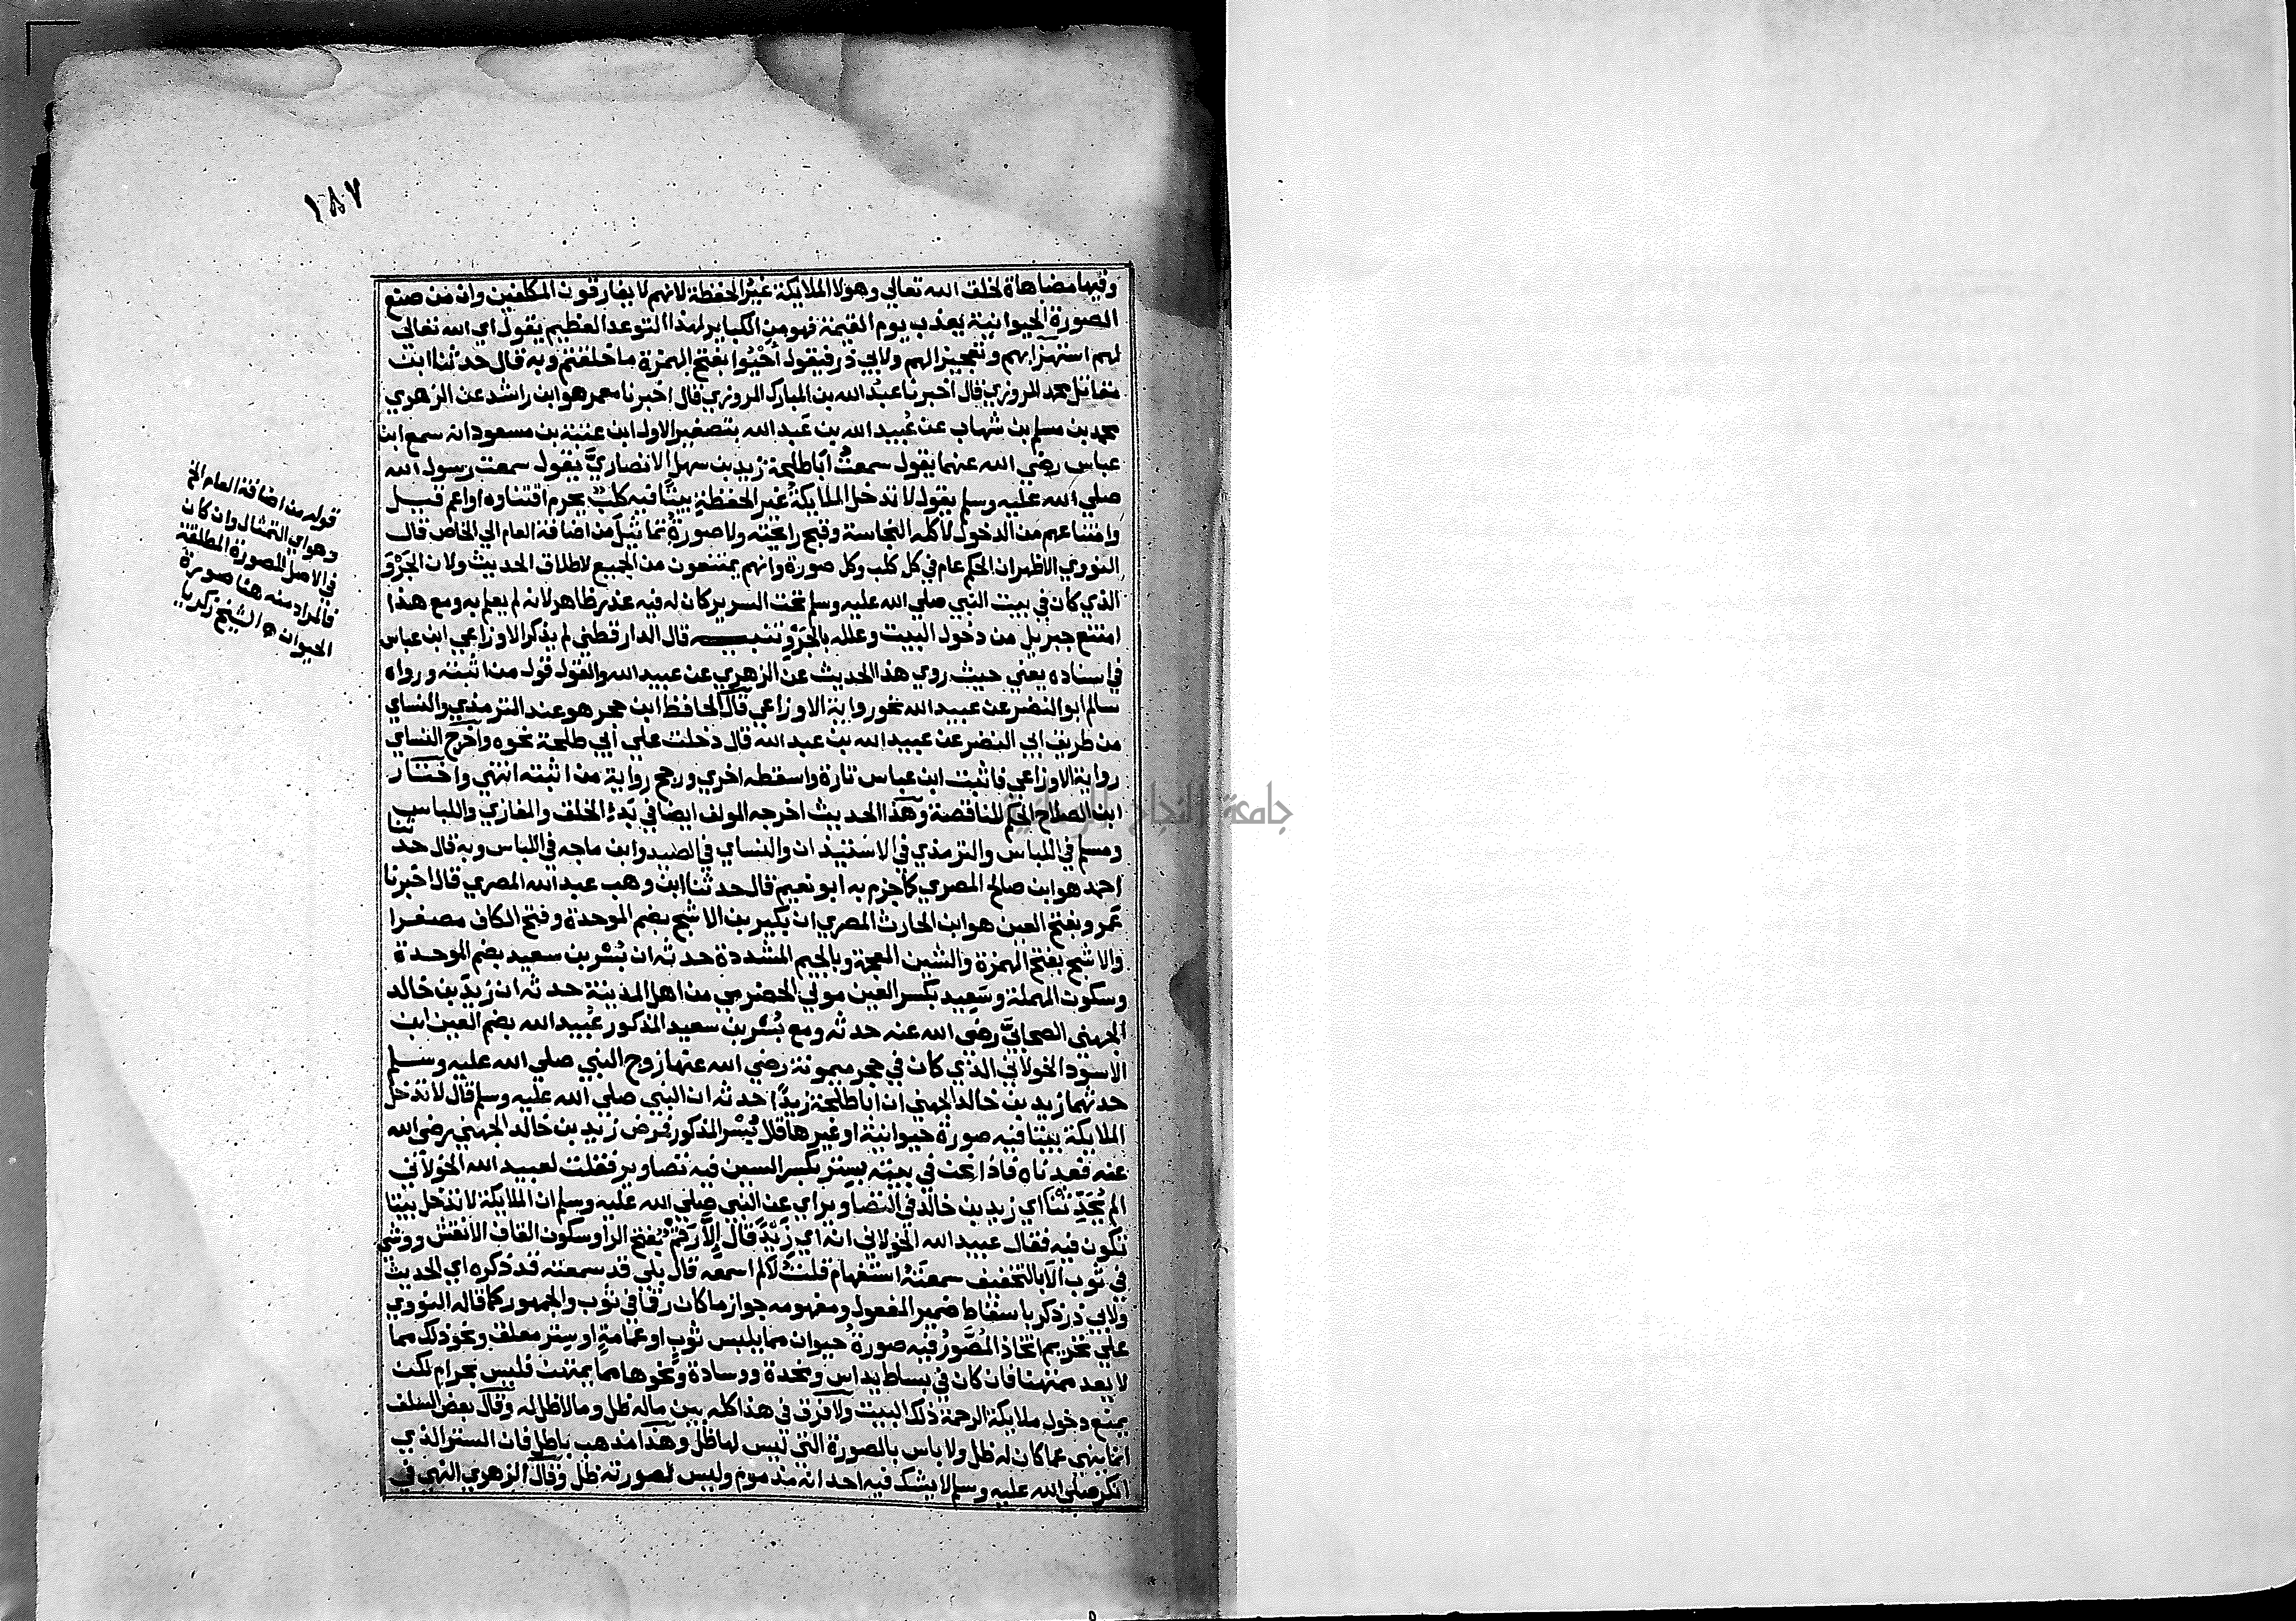 ١٨٧
وفيها مضاهاة لخلق الله تعالى وهولا الملايكة غير الحفظة لانهم لا يفارقون المكلفين وان من صنع
الصورة الحيوانية يعذب يوم القيمة فهو من الكباير لهذا التوعد العظيم يقول اي الله تعالى
لهم استهزابهم وتعجيزا لهم ولابي ذر فيقول أحيوا بفتح الهمزة ما خلقتم وبه قال حدثنا ابن
مقاتل محمد المروزي قال اخبرنا عبد الله بن المبارك المروزي قال اخبرنا معمر هو ابن راشد عن الزهري
محمد بن مسلم بن شهاب عن عبيد الله بن عبد الله بتصغير الاول ابن عتبة بن مسعود انه سمع ابن
عباس رضي الله عنهما يقول سمعت أبا طلحة زيد بن سهل الانصاري يقول سمعت رسول الله
صلي الله عليه وسلم يقول لا تدخل الملايكة غير الحفظة بيتا فيه كلب يحرم اقتناوه او اعم قيل
وامتناعهم من الدخول لاكله النجاسة وقبح رايحته ولا صورة تماثيل من اضافة العام الي الخاص قال
النووي الاظهر ان الحكم عام في كل كلب وكل صورة وانهم يمتنعون من الجميع لاطلاق الحديث ولان الجرو
الذي كان في بيت النبي صلي الله عليه وسلم تحت السرير كان له فيه عذر ظاهر لانه لم يعلم به ومع هذا
امتنع جبريل من دخول البيت وعلله بالجرو تنبيه قال الدارقطني لم يذكر الاوزاعي ابن عباس
في اسناده يعني حيث روي هذا الحديث عن الزهري عن عبيد الله والقول قول من اثبته ورواه
سالم ابو النضر عن عبيد الله نحو رواية الاوزاعي قال الحافظ ابن حجر هو عند الترمذي والنساي
من طريق ابي النضر عن عبيد الله بن عبد الله قال دخلت علي أبي طلحة نحوه واخرج النساي
رواية الاوزاعي فاثبت ابن عباس تارة واسقطه اخري ورجح رواية من اثبته انتهي واختار
ابن الصلاح الحكم للناقصة وهذا الحديث اخرجه المولف ايضا في بدء الخلق والمغازي واللباس
ومسلم في اللباس والترمذي في الاستيذان والنساي في الصيد وابن ماجه في اللباس وبه قال حدثنا
احمد هو ابن صالح المصري كما جزم به ابو نعيم قال حدثنا ابن وهب عبد الله المصري قال اخبرنا
عمرو بفتح العين هو ابن الحارث المصري ان بكير بن الاشج بضم الموحدة وفتح الكاف مصغرا
والاشج بفتح الهمزة والشين المعجمة وبالجيم المشددة حدثه ان بسر بن سعيد بضم الموحدة
وسكون المهملة وسعيد بكسر العين مولي الحضرمي من اهل المدينة حدثه ان زيد بن خالد
الجهني الصحابي رضي الله عنه حدثه ومع بسر بن سعيد المذكور عبيد الله بضم العين ابن
الاسود الخولاني الذي كان في حجر ميمونة رضي الله عنها زوج النبي صلي الله عليه وسلم
حدثهما زيد بن خالد الجهني ان ابا طلحة زيدا حدثه ان النبي صلي الله عليه وسلم قال لا تدخل
الملايكة بيتا فيه صورة حيوانية او غيرها قال بسر المذكور فمرض زيد بن خالد الجهني رضي الله
عنه فعدناه فاذا نحن في بيته بستر بكسر السين فيه تصاوير فقلت لعبيد الله الخولاني
الم يحدثنا اي زيد بن خالد في التصاوير اي عن النبي صلي الله عليه وسلم ان الملايكة لا تدخل بيتا
تكون فيه فقال عبيد الله الخولاني انه اي زيد قال إلا رقم بفتح الرا وسكون القاف الا نقش ووشي
في ثوب ألا بالتخفيف سمعته استفهام قلت لا لم اسمعه قال بلي قد سمعته قد ذكره اي الحديث
ولابي ذر ذكر باسقاط ضمير المفعول ومفهومه جواز ما كان رقما في ثوب والجمهور كما قاله النووي
علي تحريم اتخاذ المصور فيه صورة حيوان مما يلبس ثوب او عمامة او ستر معلق ونحو ذلك مما
لا يعد ممتهنا فان كان في بساط يداس ومخدة ووسادة ونحوها مما يمتهن فليس بحرام لكن
يمنع دخول ملايكة الرحمة ذلك البيت ولا فرق في هذا كله بين ماله ظل وما لا ظل له وقال بعض السلف
انما ينهي عما كان له ظل ولا باس بالصورة التي ليس لها ظل وهذا مذهب باطل فان الستر الذي
انكر صلي الله عليه وسلم لا يشك فيه احد انه مذموم وليس لصورته ظل وقال الزهري النهي في
قوله من اضافة العام الخ
وهو اي التمثال وان كان
في الاصل للصورة المطلقة
فالمراد منه هنا صورة
الحيوان الشيخ زكريا
جامعة النجاح الوطنية